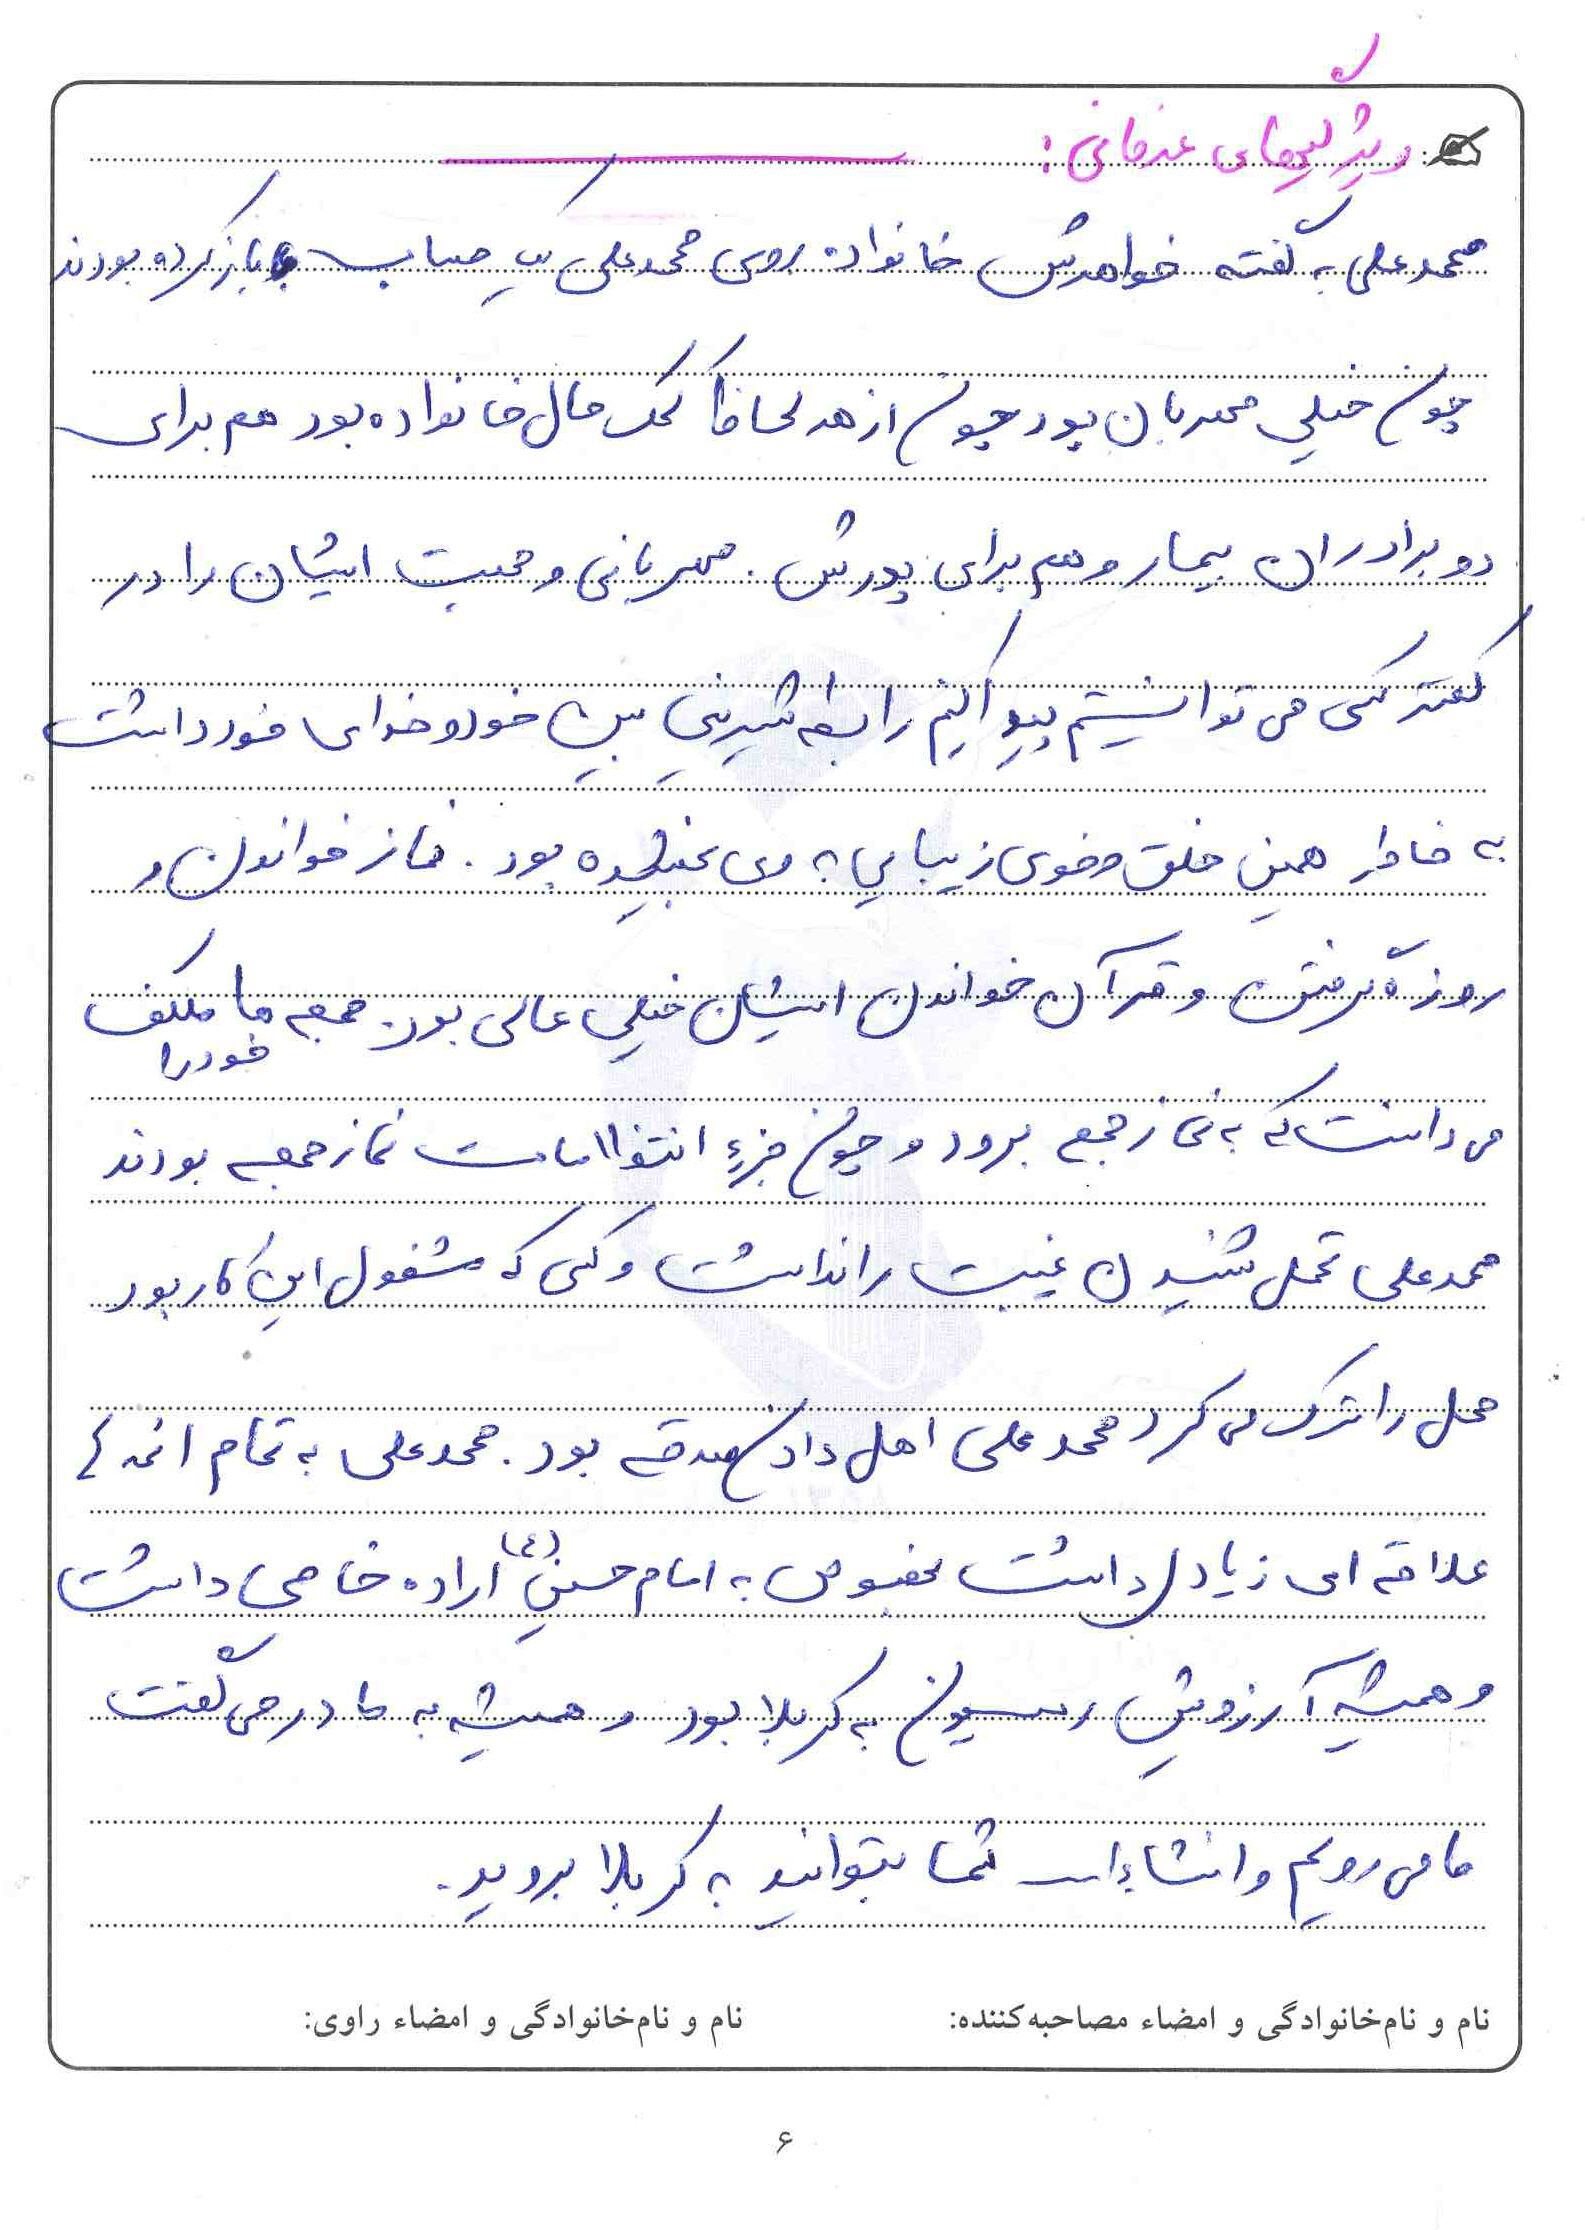 ویژگیهای عرفانی:
محمدعلی به گفته خواهرش خانواده روی محمدعلی یک حساب باز کرده بودند
چون خیلی مهربان بود چون از هر لحاظ کمک حال خانواده بود هم برای
دو برادران بیمار و هم برای پدرش. مهربانی و محبت ایشان را در
کمتر کسی می توانستیم پیدا کنیم رابطه شیرینی بین خود و خدای خود داشت
به خاطر همین خلق و خوی زیبایی به وی بخشیده بود. نماز خواندن و
روزه گرفتن و قرآن خواندن ایشان خیلی عالی بود. جمعه ها مکلف
خود را
می دانست که به نماز جمعه برود و چون جزء انتظامات نماز جمعه بودند
محمدعلی تحمل شنیدن غیبت را نداشت و کسی که مشغول این کار بود
محل را ترک می کرد محمدعلی اهل دادن صدقه بود. محمدعلی به تمام ائمه
علاقه ای زیاد داشت بخصوص به امام حسین (ع) اراده خاصی داشت
و همیشه آرزویش رسیدن به کربلا بود و همیشه به مادر می گفت
ما می رویم و انشاءا... شما بتوانید به کربلا بروید.
نام و نام‌خانوادگی و امضاء مصاحبه‌کننده:
نام و نام‌خانوادگی و امضاء راوی:
۶